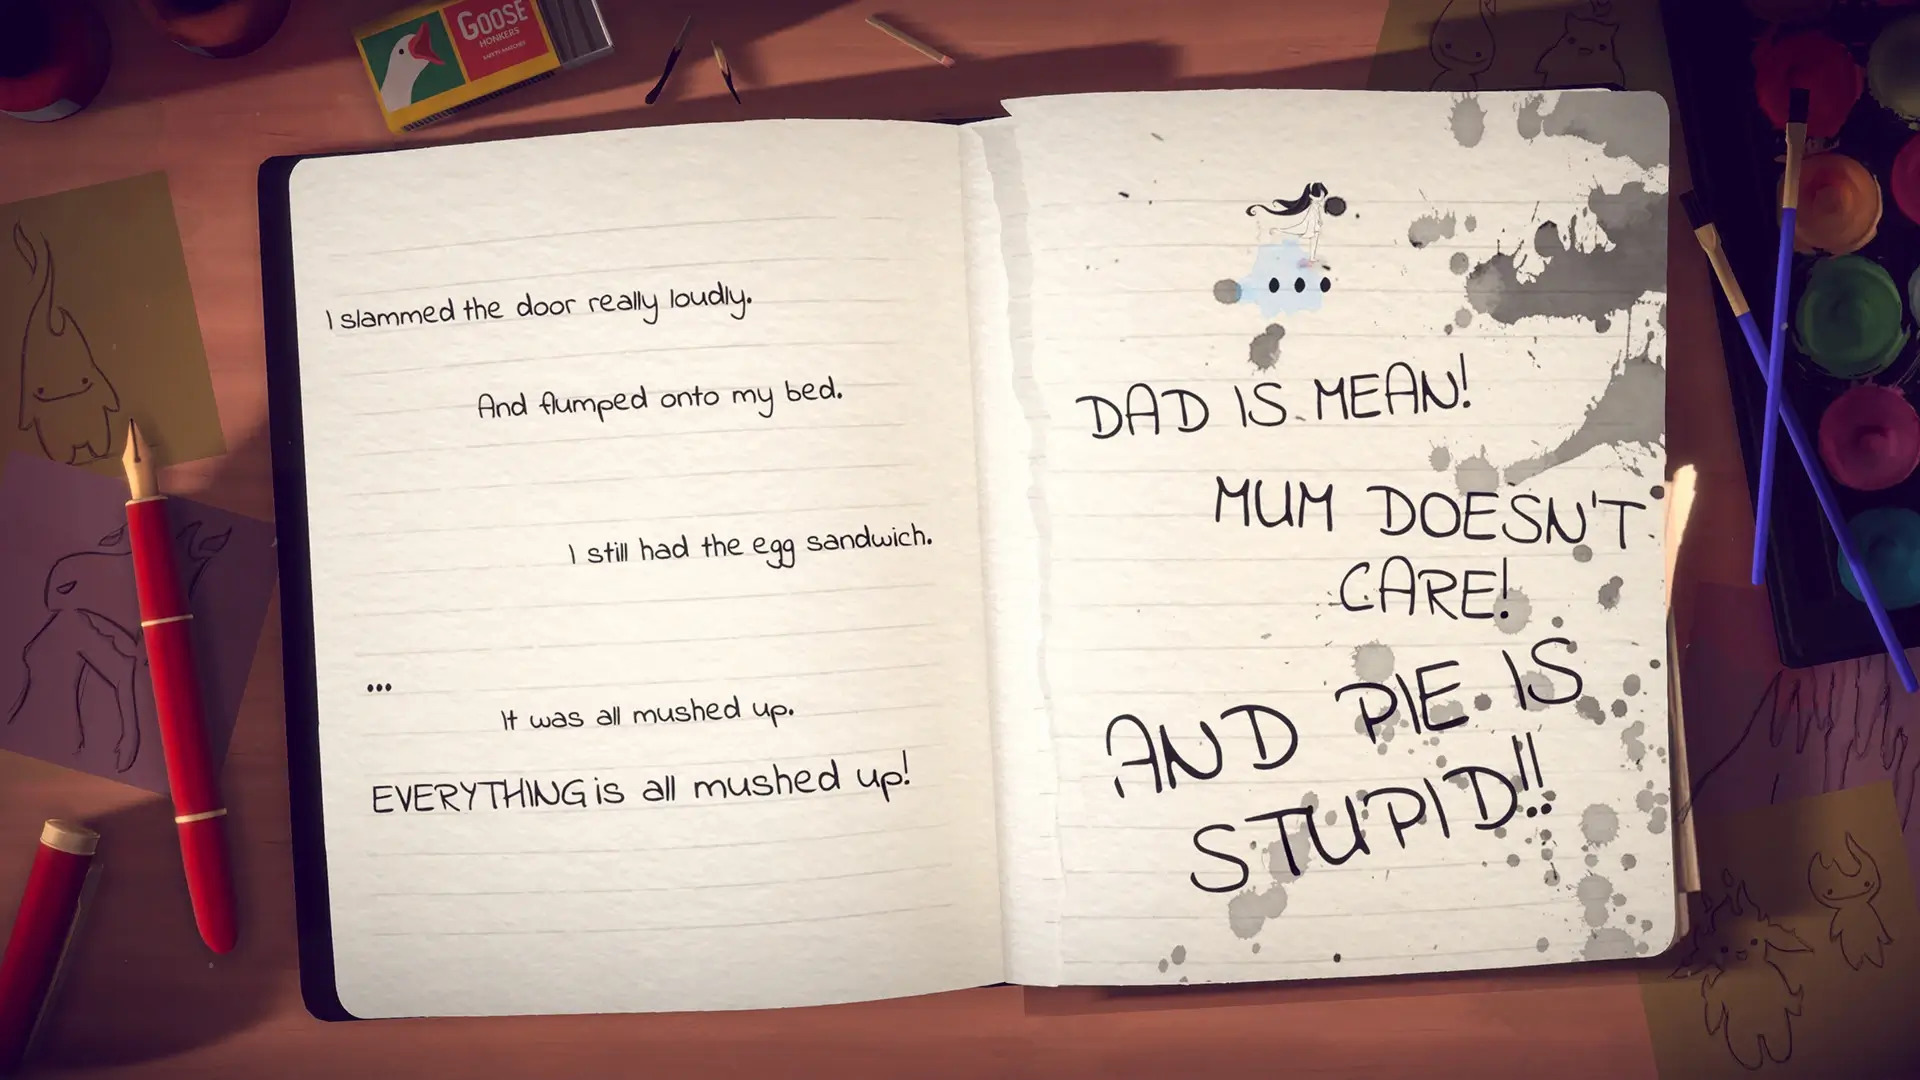 GOOSE
HONKERS
I slammed the door really loudly.
And flumped onto my bed.
I still had the egg sandwich.
...
It was all mushed up.
EVERYTHING is all mushed up!
...
DAD IS MEAN!
MUM DOESN'T
CARE!
AND PIE IS
STUPID!!